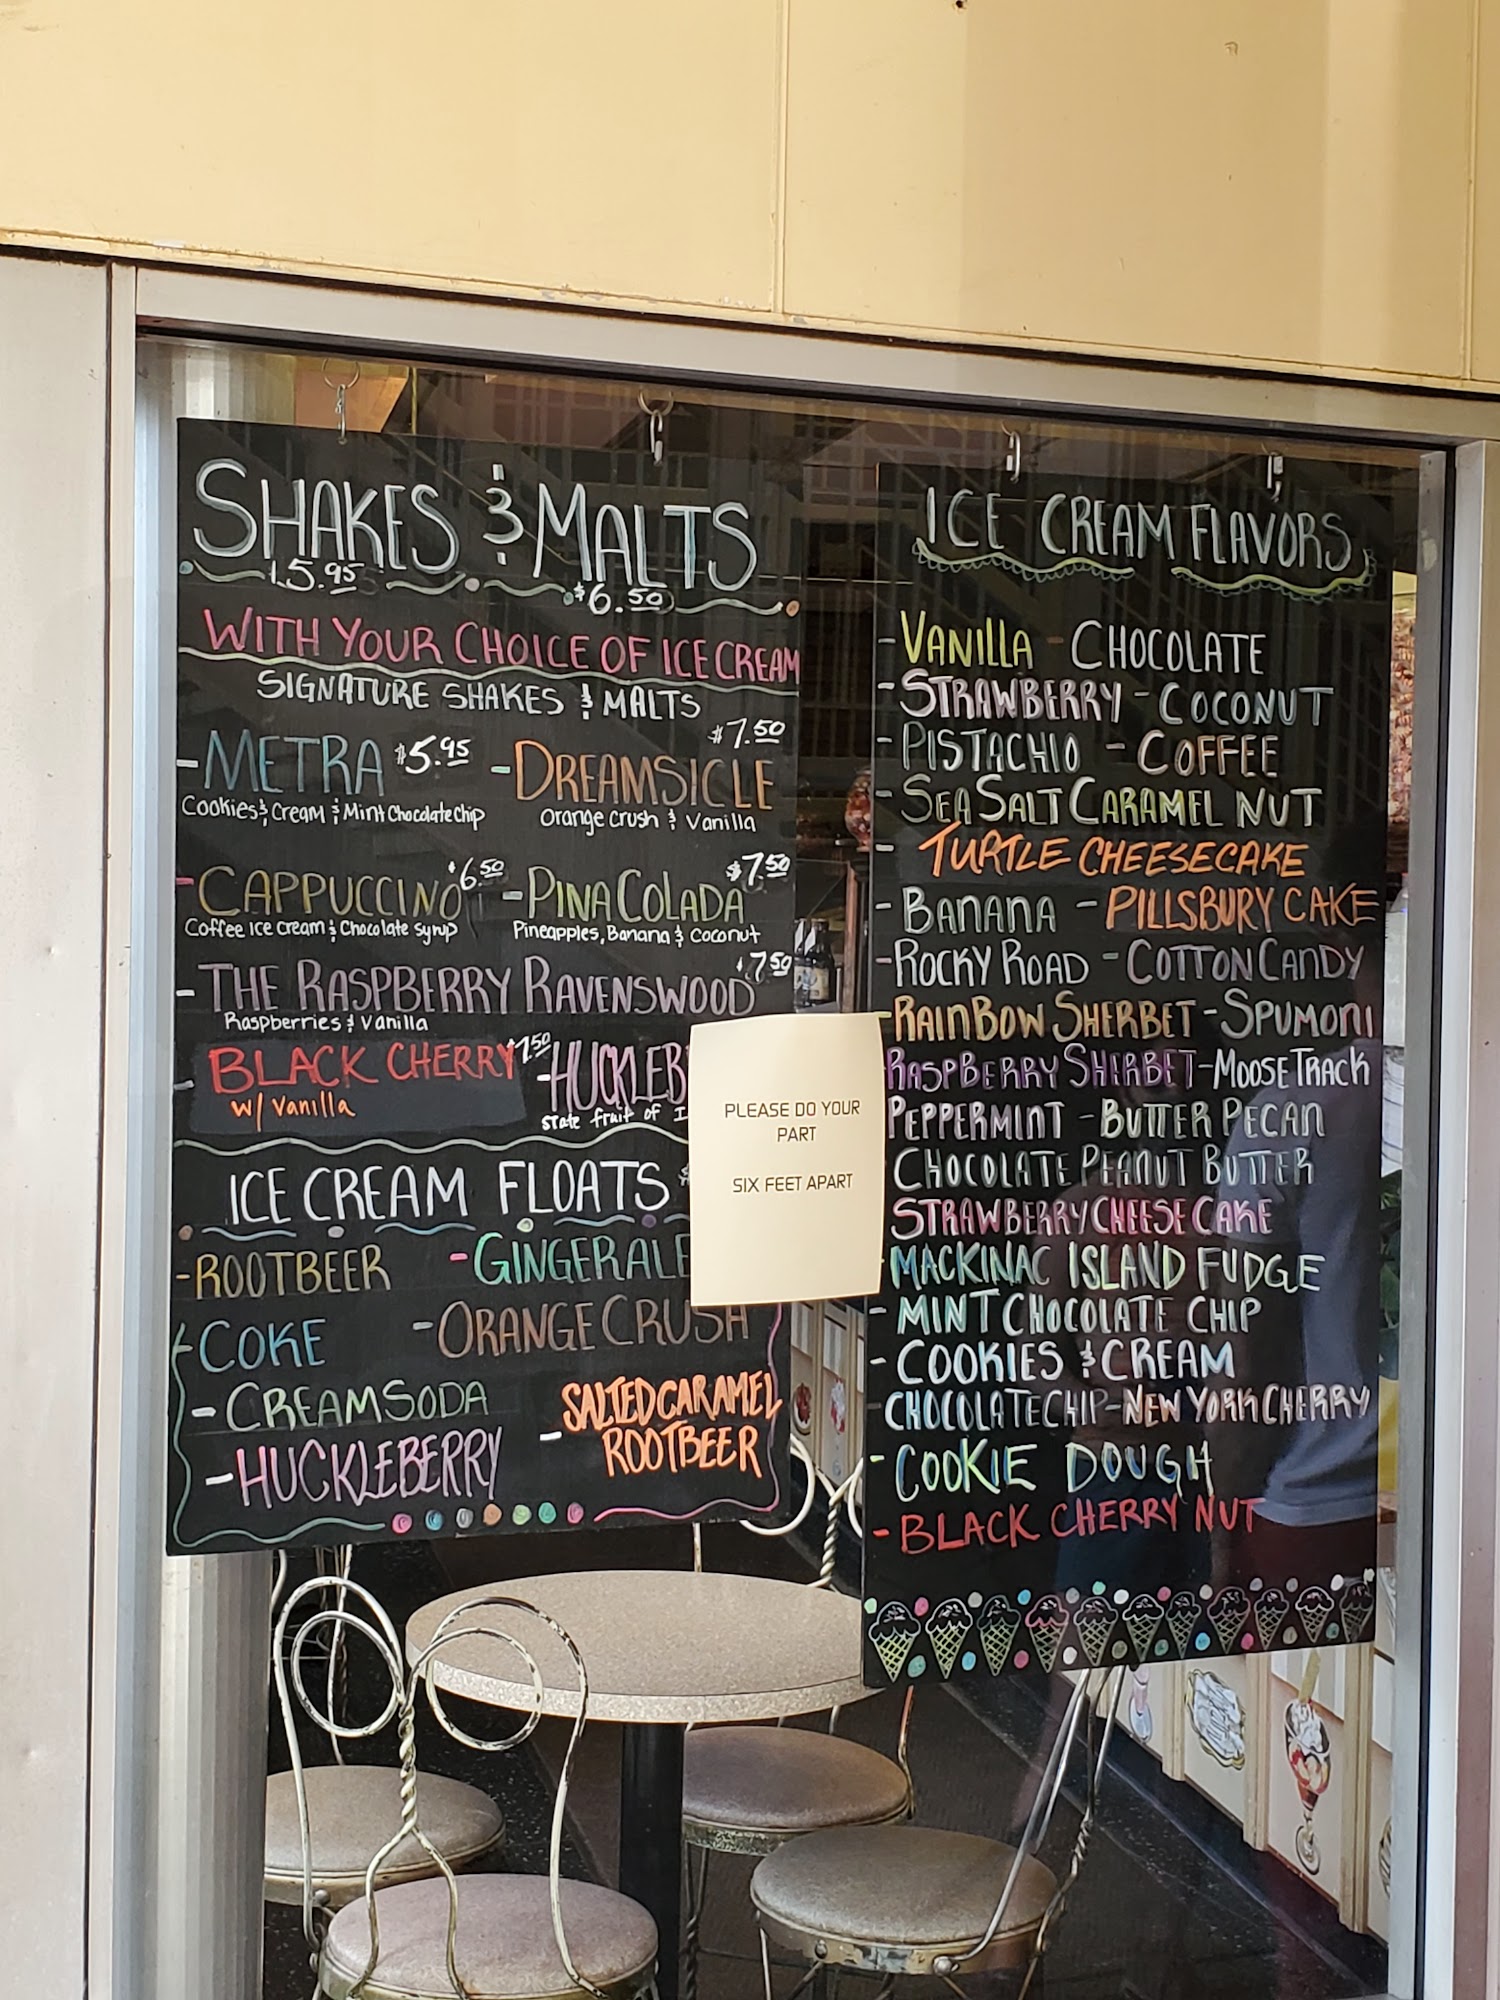 SHAKES & MALTS
$5.95
$6.50
WITH YOUR CHOICE OF ICE CREAM
SIGNATURE SHAKES & MALTS
- METRA $5.95
Cookies & Cream & Mint Chocolate Chip
- DREAMSICLE $7.50
Orange Crush & Vanilla
- CAPPUCCINO $6.50
Coffee Ice Cream & Chocolate Syrup
- PINA COLADA $7.50
Pineapples, Banana & Coconut
- THE RASPBERRY RAVENSWOOD $7.50
Raspberries & Vanilla
- BLACK CHERRY $7.50
w/ Vanilla
- HUCKLEB
State fruit of I
ICE CREAM FLOATS $
- ROOTBEER - GINGERALE
- COKE - ORANGE CRUSH
- CREAM SODA
- SALTED CARAMEL
ROOTBEER
- HUCKLEBERRY
PLEASE DO YOUR
PART
SIX FEET APART
ICE CREAM FLAVORS
- VANILLA - CHOCOLATE
- STRAWBERRY - COCONUT
- PISTACHIO - COFFEE
- SEA SALT CARAMEL NUT
- TURTLE CHEESECAKE
- BANANA - PILLSBURY CAKE
- ROCKY ROAD - COTTON CANDY
- RAINBOW SHERBET - SPUMONI
RASPBERRY SHERBET - MOOSE TRACK
PEPPERMINT - BUTTER PECAN
CHOCOLATE PEANUT BUTTER
STRAWBERRY CHEESE CAKE
MACKINAC ISLAND FUDGE
- MINT CHOCOLATE CHIP
- COOKIES & CREAM
CHOCOLATE CHIP - NEW YORK CHERRY
- COOKIE DOUGH
- BLACK CHERRY NUT